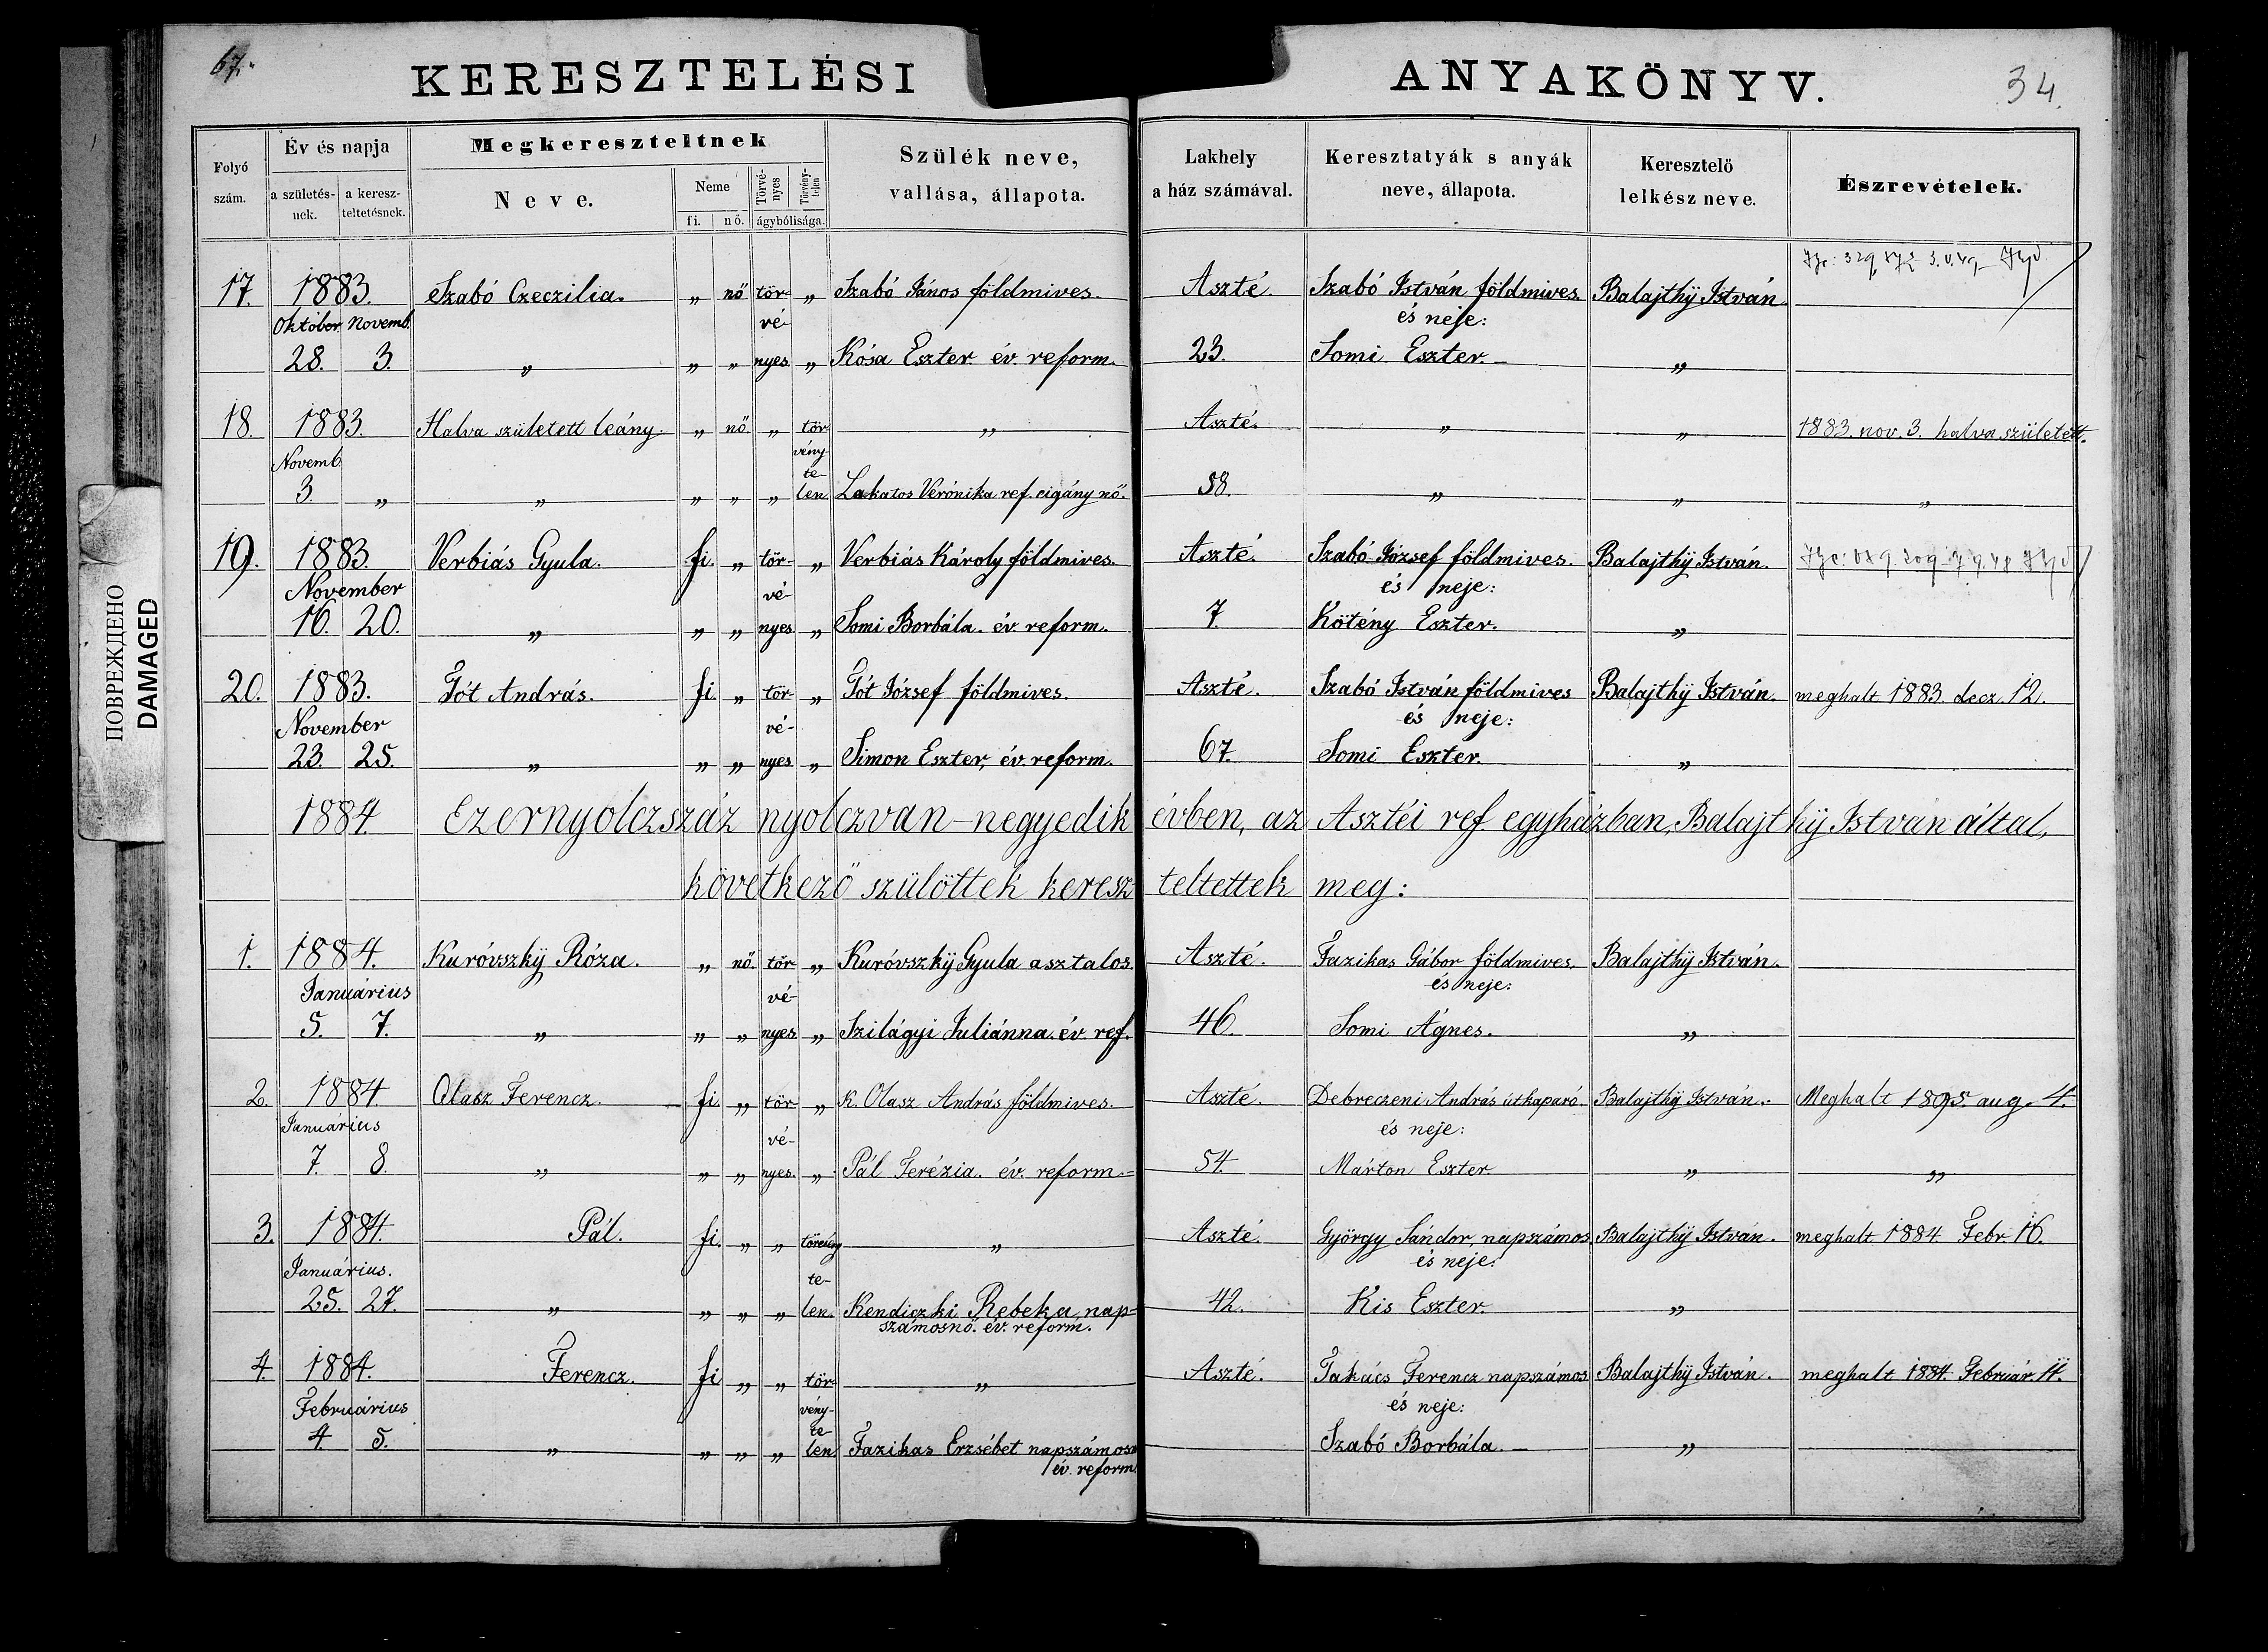 67.
KERESZTELÉSI ANYAKÖNYV.
34.
Folyó szám.
Év és napja
a születésnek.
a keresz-teltetésnek.
Megkereszteltnek
Neve.
Neme
fi. nő.
Törvé-nyes
Törvény-telen
ágybólisága.
Szülék neve,
vallása, állapota.
Lakhely
a ház számával.
Keresztatyák s anyák
neve, állapota.
Keresztelő
lelkész neve.
Észrevételek.
17. 1883. Szabó Czeczilia. „ nő tör- „ Szabó János földmives. Aszté. Szabó István földmives. Balajthÿ István.
Október Novemb. vé- és neje:
28. 3. „ „ „ nyes „ Kósa Eszter év. reform. 23. Somi Eszter. „
18. 1883. Halva született leány. „ nő. „ tör „ Aszté. „ „ 1883. nov. 3. halva született.
Novemb. vény-
te-
3. „ „ „ „ „ len Lakatos Verónika ref. cigány nő. 58. „ „ „
19. 1883. Verbiás Gyula. fi. „ tör- „ Verbiás Károly földmives. Aszté. Szabó József földmives. Balajthÿ István.
November vé- és neje:
16. 20. „ „ „ nyes „ Somi Borbála. év. reform. 7. Kötény Eszter. „
20. 1883. Tót András. fi. „ tör- „ Tót József földmives. Aszté. Szabó István földmives Balajthÿ István. meghalt 1883. decz. 12.
November vé- és neje:
23. 25. „ „ „ nyes „ Simon Eszter, év. reform. 67. Somi Eszter. „
1884. Ezernyolczszáz nyolczvan-negyedik évben, az Asztéi ref. egyházban, Balajthÿ István által,
következő szülöttek keresz teltettek meg:
1. 1884. Kuróvszkÿ Róza. „ nő. tör- „ Kuróvszkÿ Gyula asztalos. Aszté. Fazikas Gábor földmives. Balajthÿ István.
Januárius vé- és neje:
5. 7. „ „ „ nyes „ Szilágyi Juliánna. év. ref. 46. Somi Ágnes. „
2. 1884. Olasz Ferencz. fi. „ tör „ K. Olasz András földmives. Aszté. Debreczeni András útkaparó. Balajthÿ István. Meghalt 1895. aug. 4.
Januárius vé- és neje:
7. 8. „ „ „ nyes. „ Pál Terézia. év. reform. 54. Márton Eszter. „ „
3. 1884. Pál. fi. „ „ törvény „ Aszté. György Sándor, napszámos Balajthÿ István. meghalt 1884. Febr. 16.
Januárius. te- és neje:
25. 27. „ „ „ „ len. Kendiczki Rebeka nap- 42. Kis Eszter. „
számosnő. év. reform.
4. 1884. Ferencz. fi „ „ tör- „ Aszté. Takács Ferencz napszámos Balajthÿ István. meghalt 1884. Február. 11.
Februárius veny- és neje:
te-
4. 5. „ „ „ „ len Fazikas Erzsébet napszámosn Szabó Borbála. „
év. reform.
ПОВРЕЖДЕНО
DAMAGED